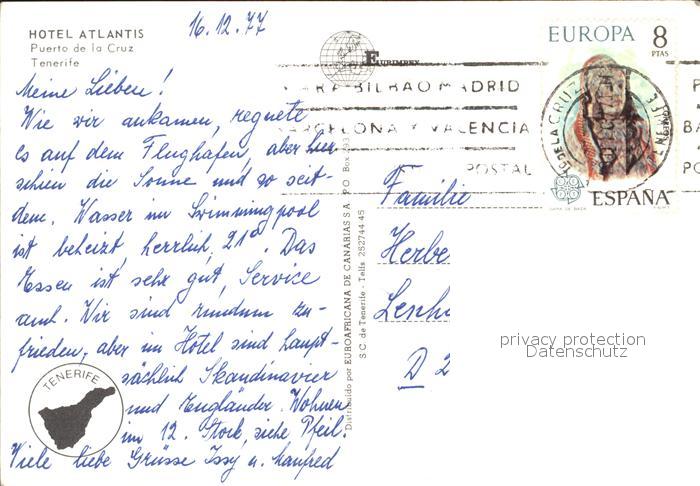 16.12.77
HOTEL ATLANTIS
Puerto de la Cruz
Tenerife
Meine Lieben!
Wie wir ankamen, regnete
es auf dem Flughafen, aber hier
schien die Sonne und so seit-
dem. Wasser im Swimmingpool
ist beheizt, herrlich, 21°. Das
Essen ist sehr gut, Service
auch. Wir sind rundum zu-
frieden, aber im Hotel sind haupt-
sächlich Skandinavier
und Engländer. Wohnen
im 12. Stock, siehe Pfeil.
Viele liebe Grüsse Issy u. Manfred
TENERIFE
EURIMPEX
Distribuido por EUROAFRICANA DE CANARIAS S.A. P.O. Box 293
S.C. de Tenerife - Telfs 252744 45
PARA BILBAO MADRID
BARCELONA Y VALENCIA
POSTAL
EUROPA 8
PTAS
ESPAÑA
Familie
Herbe
D 2
privacy protection
Datenschutz